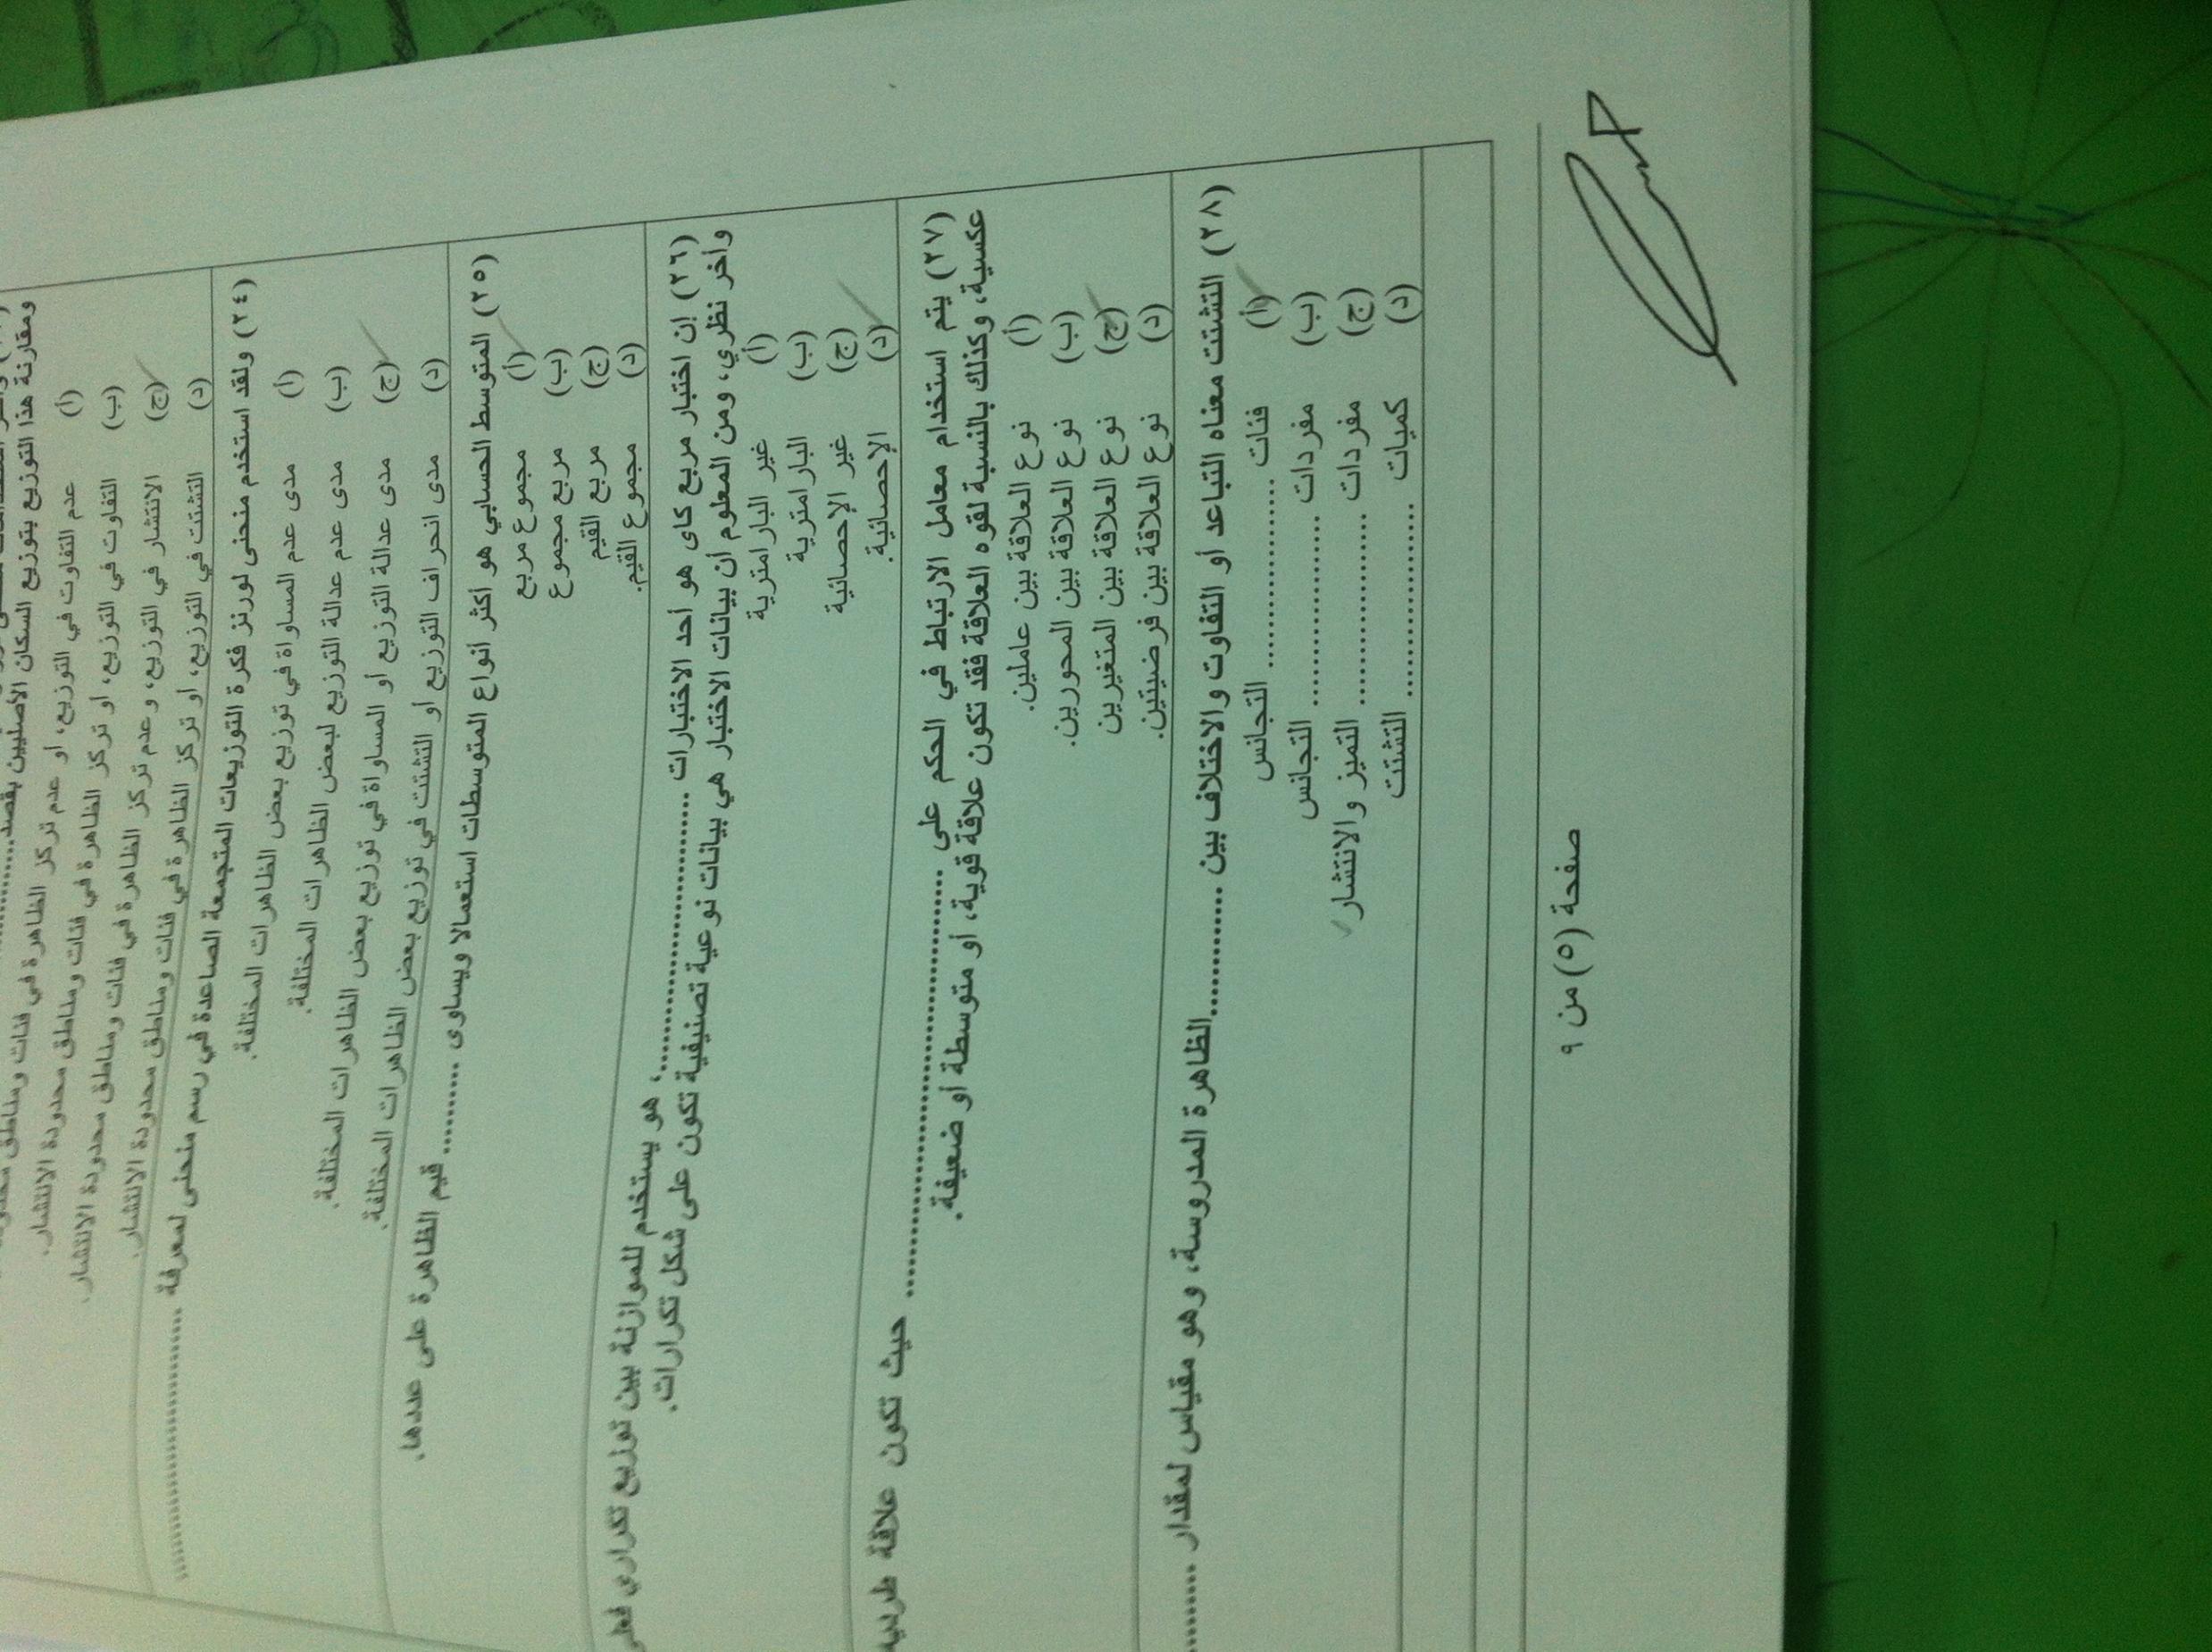 ومقارنة هذا التوزيع بتوزيع السكان الأصليين بقصد
(أ) عدم التفاوت في التوزيع، أو عدم تركز الظاهرة في فئات ومناطق محدودة الانتشار.
(ب) التفاوت في التوزيع، أو تركز الظاهرة في فئات ومناطق محدودة الانتشار.
(ج) الانتشار في التوزيع، وعدم تركز الظاهرة في فئات ومناطق محدودة الانتشار.
(د) التشتت في التوزيع، أو تركز الظاهرة في فئات ومناطق محدودة الانتشار.
(٢٤) ولقد استخدم منحنى لورنز فكرة التوزيعات المتجمعة الصاعدة في رسم منحنى لمعرفة ..............................
(أ) مدى عدم المساواة في توزيع بعض الظاهرات المختلفة.
(ب) مدى عدم عدالة التوزيع لبعض الظاهرات المختلفة.
(ج) مدى عدالة التوزيع أو المساواة في توزيع بعض الظاهرات المختلفة.
(د) مدى انحراف التوزيع أو التشتت في توزيع بعض الظاهرات المختلفة.
(٢٥) المتوسط الحسابي هو أكثر أنواع المتوسطات استعمالا ويساوى .......... قيم الظاهرة على عددها.
(أ) مجموع مربع
(ب) مربع مجموع
(ج) مربع القيم
(د) مجموع القيم.
(٢٦) إن اختبار مربع كاى هو أحد الاختبارات ..............................، هو يستخدم للموازنة بين توزيع تكراري فعلي
وأخر نظري، ومن المعلوم أن بيانات الاختبار هي بيانات نوعية تصنيفية تكون على شكل تكرارات.
(أ) غير البارامترية
(ب) البارامترية
(ج) غير الإحصائية
(د) الإحصائية.
(٢٧) يتم استخدام معامل الارتباط في الحكم على .................................................. حيث تكون علاقة طردية
عكسية، وكذلك بالنسبة لقوه العلاقة فقد تكون علاقة قوية، أو متوسطة أو ضعيفة.
(أ) نوع العلاقة بين عاملين.
(ب) نوع العلاقة بين المحورين.
(ج) نوع العلاقة بين المتغيرين
(د) نوع العلاقة بين فرضيتين.
(٢٨) التشتت معناه التباعد أو التفاوت والاختلاف بين ..............الظاهرة المدروسة، وهو مقياس لمقدار ..........
(أ) فئات .................... التجانس
(ب) مفردات .................... التجانس
(ج) مفردات .................... التميز والانتشار
(د) كميات .................... التشتت
صفحة (٥) من ٩